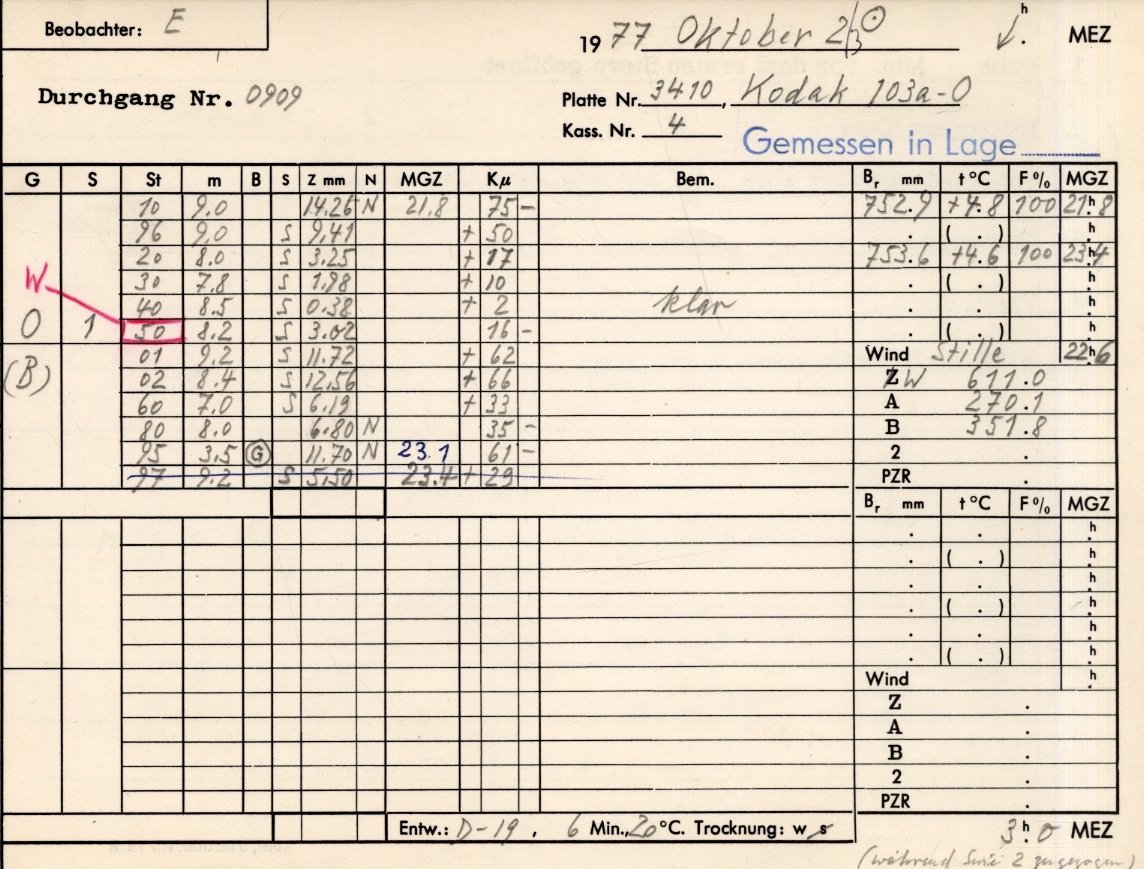 Beobachter: E
1977 Oktober 2/3 ☉ h. MEZ
Durchgang Nr. 0909
Platte Nr. 3410, Kodak 103a-O
Kass. Nr. 4
Gemessen in Lage
G S St m B S Z mm N MGZ Kμ Bem. Br mm t°C F% MGZ
10 9.0 14.26 N 21.8 75 - 752.9 +4.8 100 21h8
96 9.0 S 9.41 + 50 . ( . ) h.
20 8.0 S 3.25 + 17 753.6 +4.6 100 23h4
W 30 7.8 S 1.98 + 10 . ( . ) h.
40 8.5 S 0.38 + 2 klar . . h.
0 1 50 8.2 S 3.02 16 - . ( . ) h.
01 9.2 S 11.72 + 62 Wind Stille 22h6
(B) 02 8.4 S 12.56 + 66 Z W 611.0
60 7.0 S 6.19 + 33 A 270.1
80 8.0 6.80 N 35 - B 351.8
95 3.5 G 11.70 N 23.1 61 - 2 .
97 9.2 S 5.50 23.4 + 29 PZR .
Br mm t°C F% MGZ
. . h.
. ( . ) h.
. . h.
. ( . ) h.
. . h.
. ( . ) h.
Wind h.
Z .
A .
B .
2 .
PZR .
Entw.: D-19, 6 Min., 20°C. Trocknung: w s 3h.0 MEZ
(während Serie 2 zugezogen)